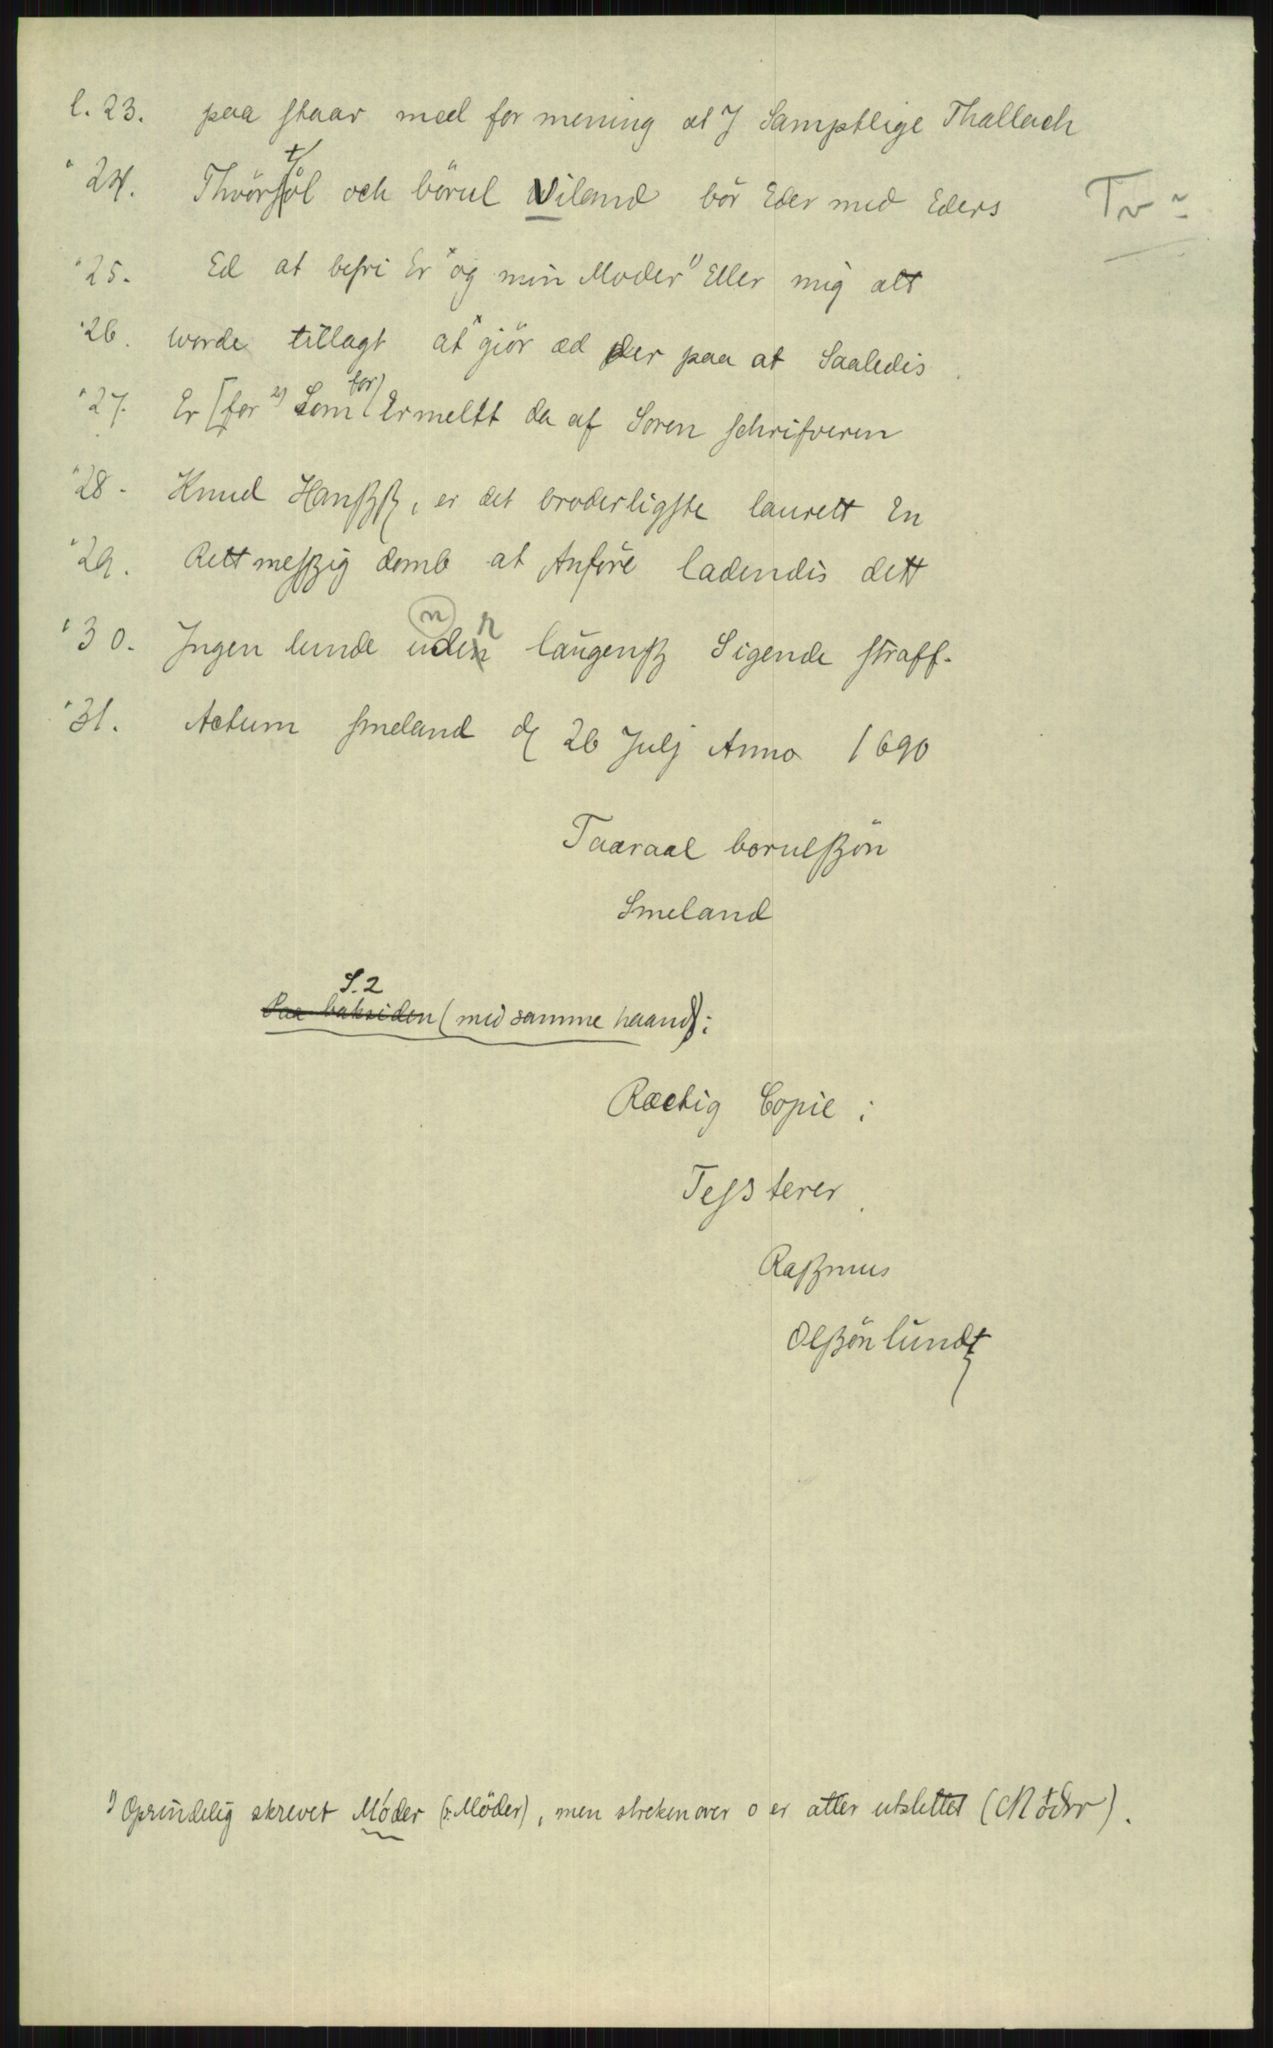 l. 23. paa staar med for mening at J Samptlige Thallach
" 24. Thvörstöl och börul Viland bör Eder med Eders
" 25. Ed at befri Er x og min Moder 1) Eller mig alt
" 26. worde tillagt at x giör æd der paa at Saaledis
" 27. Er [for 2) Som for) Ermeltt da af Soren schrifveren
" 28. Knud Hansßß, er det broderligste laurett En
" 29. Rettmesßig domb at Anföre ladendis dett
" 30. Jngen lunde uden laugensß Sigende straff.
" 31. Actum smeland d 26 Julj Anno 1690
Taaraal borulsßön
Smeland
S. 2
Paa baksiden (med samme haand):
Ræctig Copie :
Tess terer
Raßmus
Olßön lundt
1) Oprindelig skrevet Móder (ɔ: Möder), men streken over o er atter utslettet (Moder).